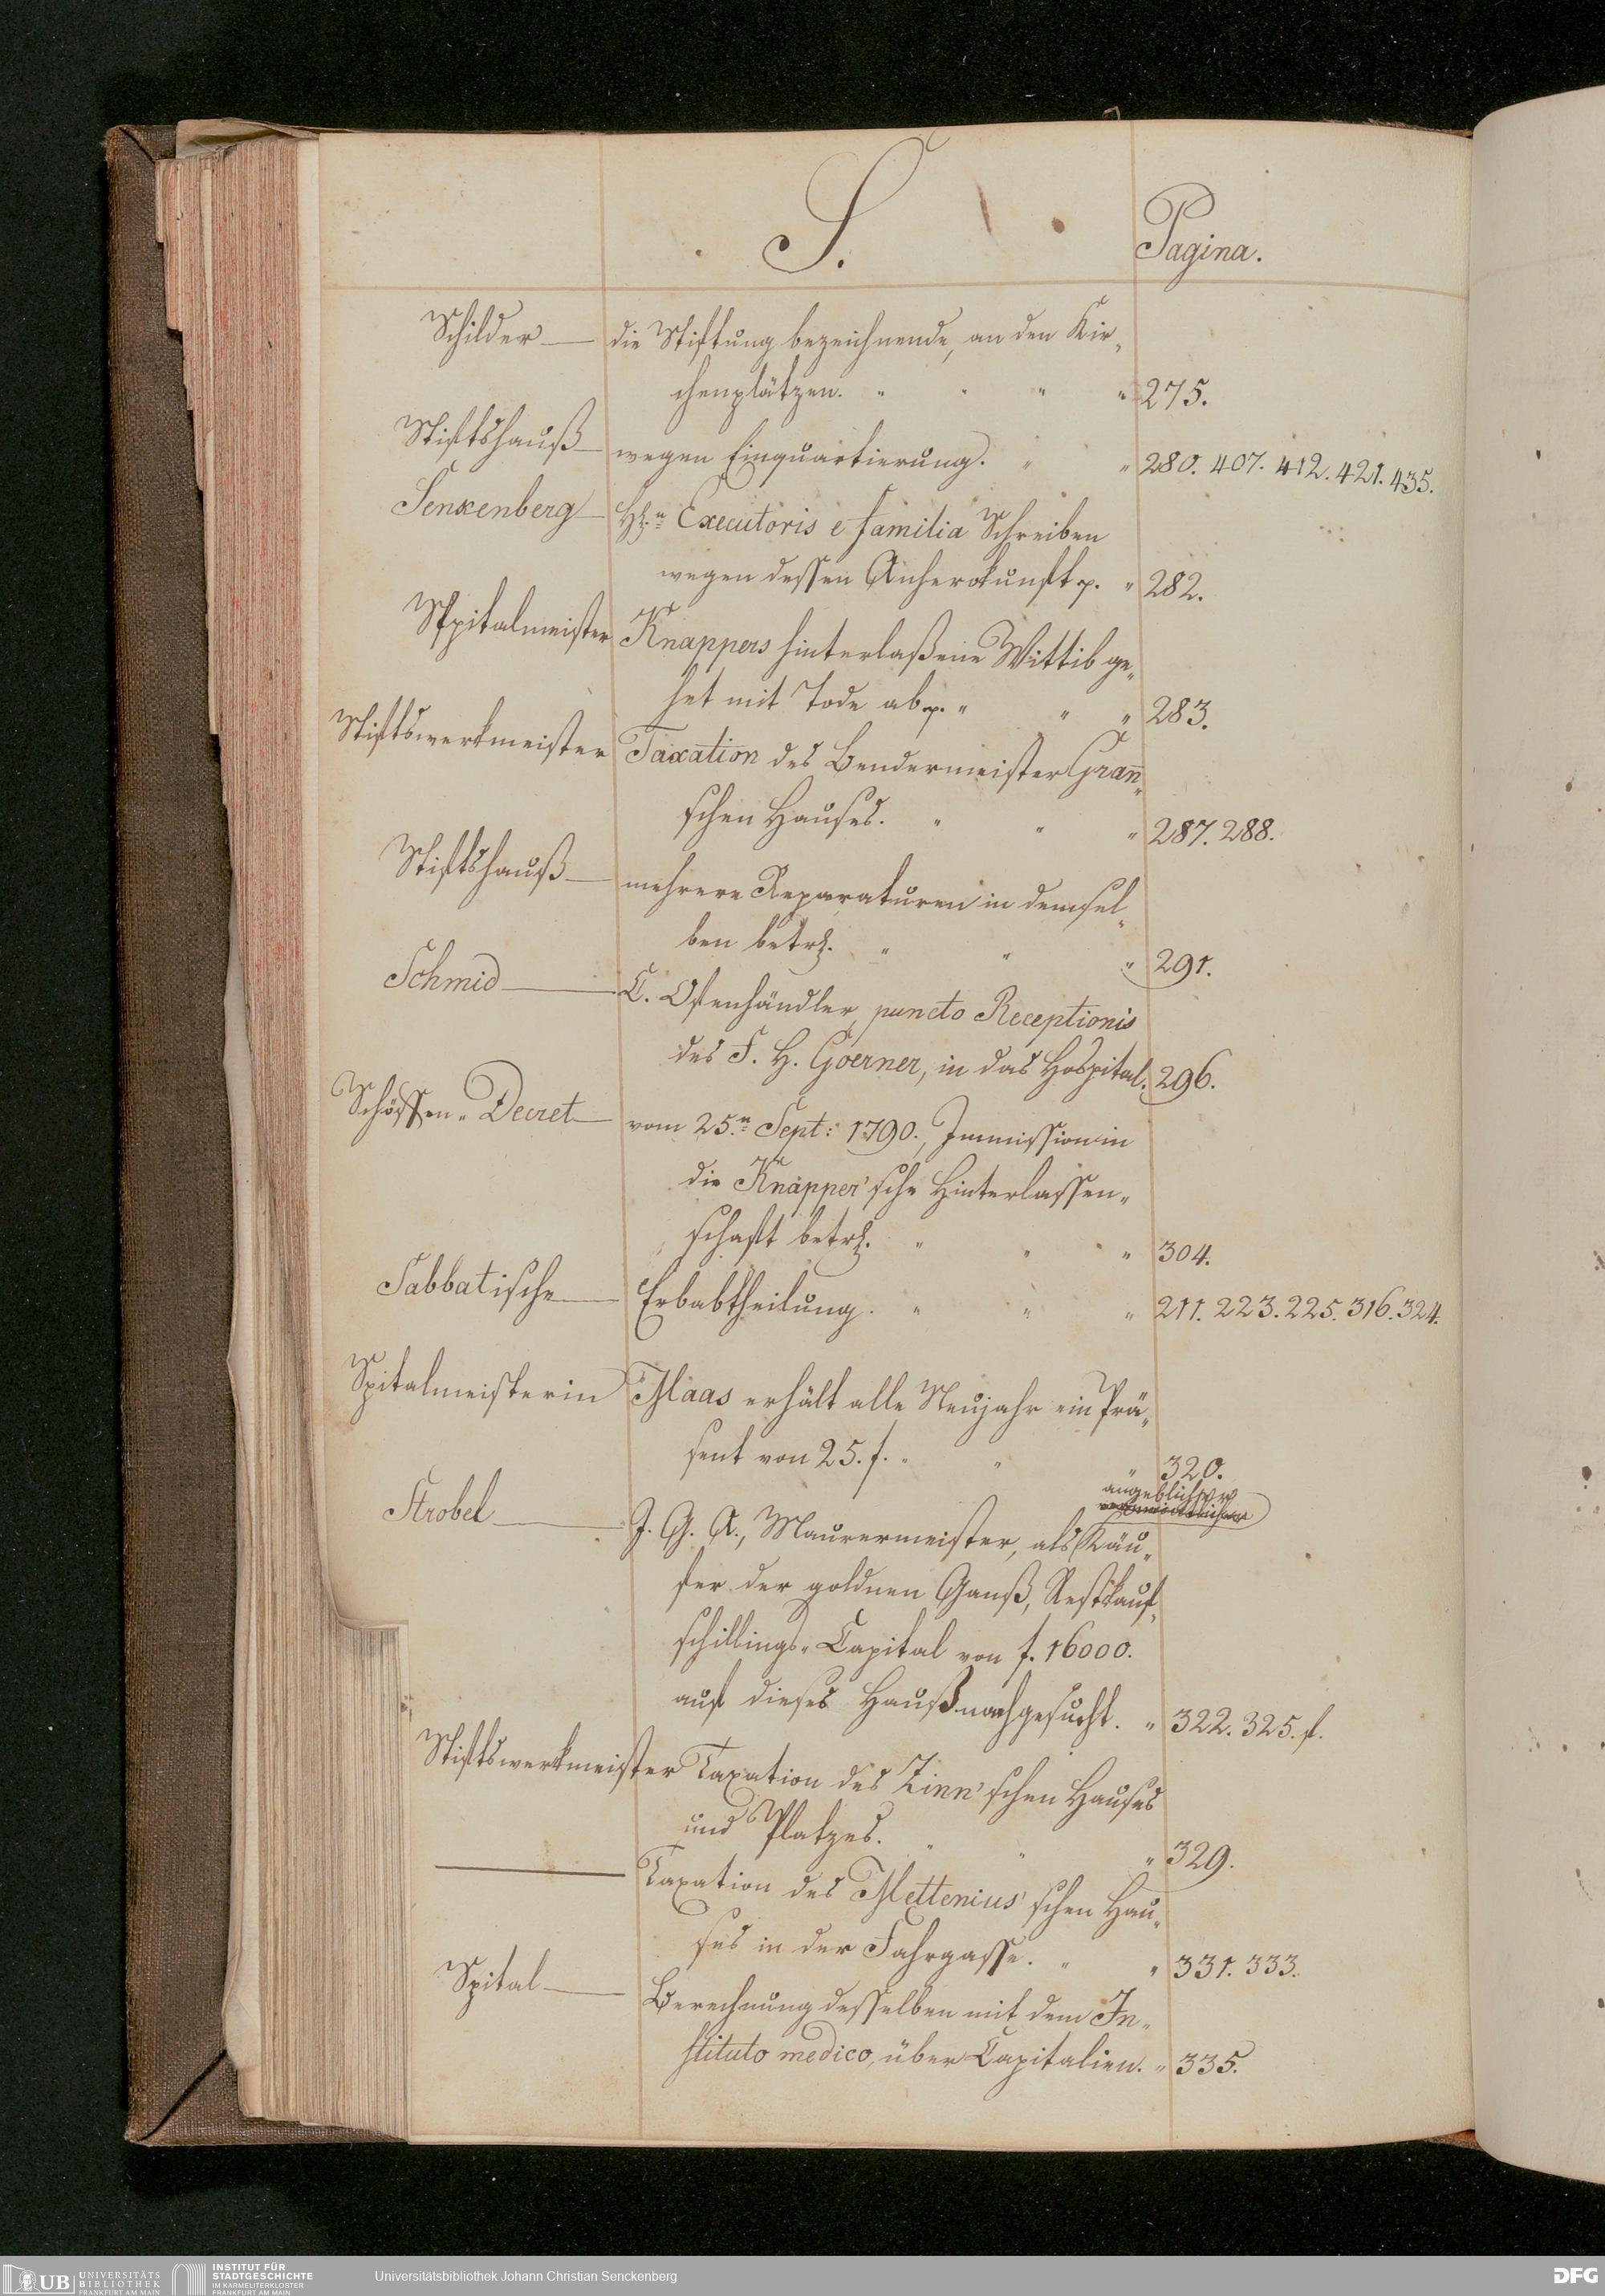 S.
Pagina.
Schilder — die Stiftung bezeichnende, an den Kir„
chenplätzen. " " " " 275.
Stiftshauß — wegen Einquartierung. " " 280. 407. 412. 421. 435.
Senkenberg — H. Executoris e familia Schreiben
wegen dessen Anherokunft p. " 282.
Spitalmeister Knappers hinterlaßene Wittib ge„
het mit Tode ab p. " " " 283.
Stiftswerkmeister Taxation des Bendermeister Gran̄„
schen Hauses. " " " 287. 288.
Stiftshauß — mehrere Reparaturen in demsel„
ben betr. " " " 291.
Schmid — C. Ofenhändler, puncto Receptionis
des F. H. Goerner, in das Hospital. 296.
Schöffen„Decret — vom 25.n Sept: 1790., Immission in
die Knapper'sche Hinterlassen„
schaft betr. " " " 304.
Sabbatische — Erbabtheilung. " " " 211. 223. 225. 316. 324.
Spitalmeisterin Maas erhält alle Neujahr ein Prä„
sent von 25. f. " " " 320.
angeblicher
Strobel — J. G. A., Maurermeister, als Käu„
fer der goldnen Ganß, Restkauf„
schillings„Capital von f. 16000.
auf dieses Hauß nachgesucht. " 322. 325. f.
Stiftswerkmeister Taxation des Zinn'schen Hauses
und Platzes. " " " 329.
— Taxation des Mettenius'schen Hau„
ses in der Fahrgasse. " " 331. 333.
Spital — Berechnung desselben mit dem In„
stituto medico, über Capitalien. " 335.
UB UNIVERSITÄTS
BIBLIOTHEK
FRANKFURT AM MAIN
INSTITUT FÜR
STADTGESCHICHTE
IM KARMELITERKLOSTER
FRANKFURT AM MAIN
Universitätsbibliothek Johann Christian Senckenberg
DFG